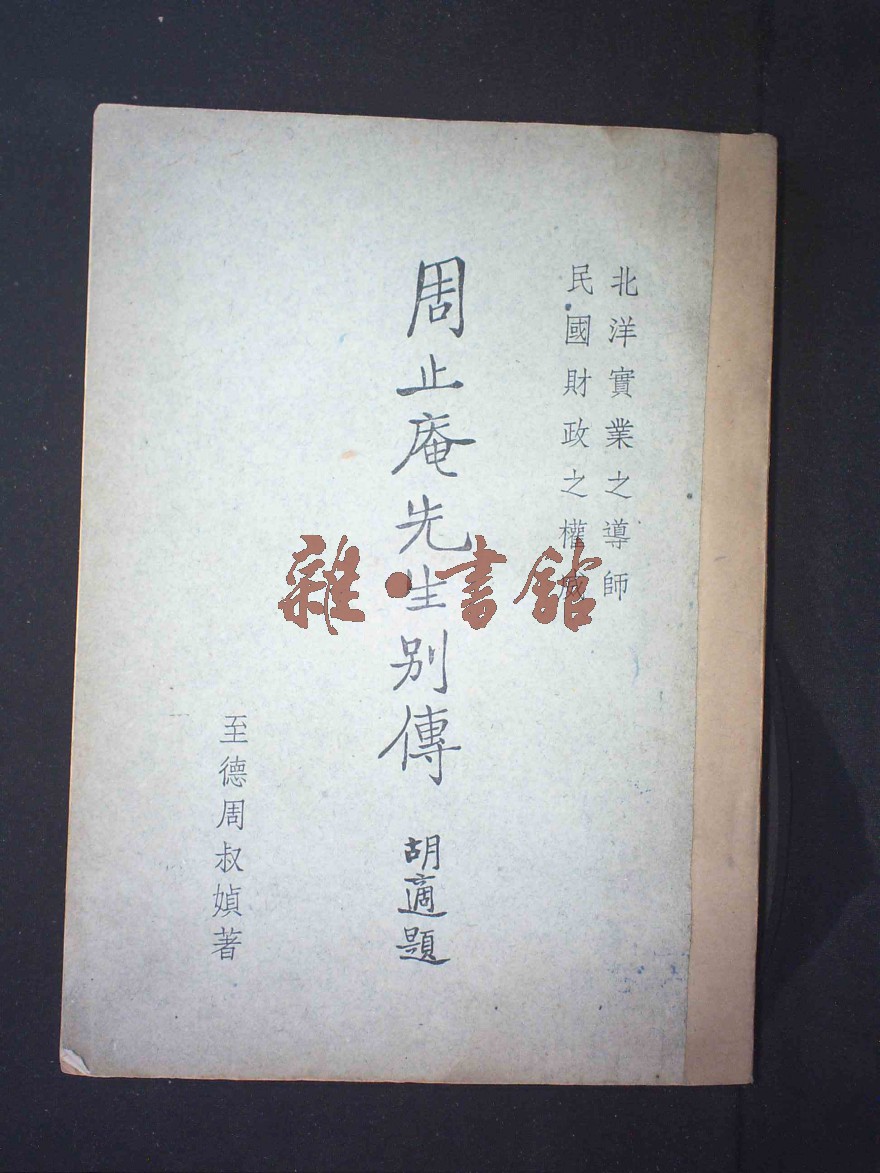 北洋實業之導師
民國財政之權威
周止庵先生別傳
胡適題
至德周叔媜著
雜·書館